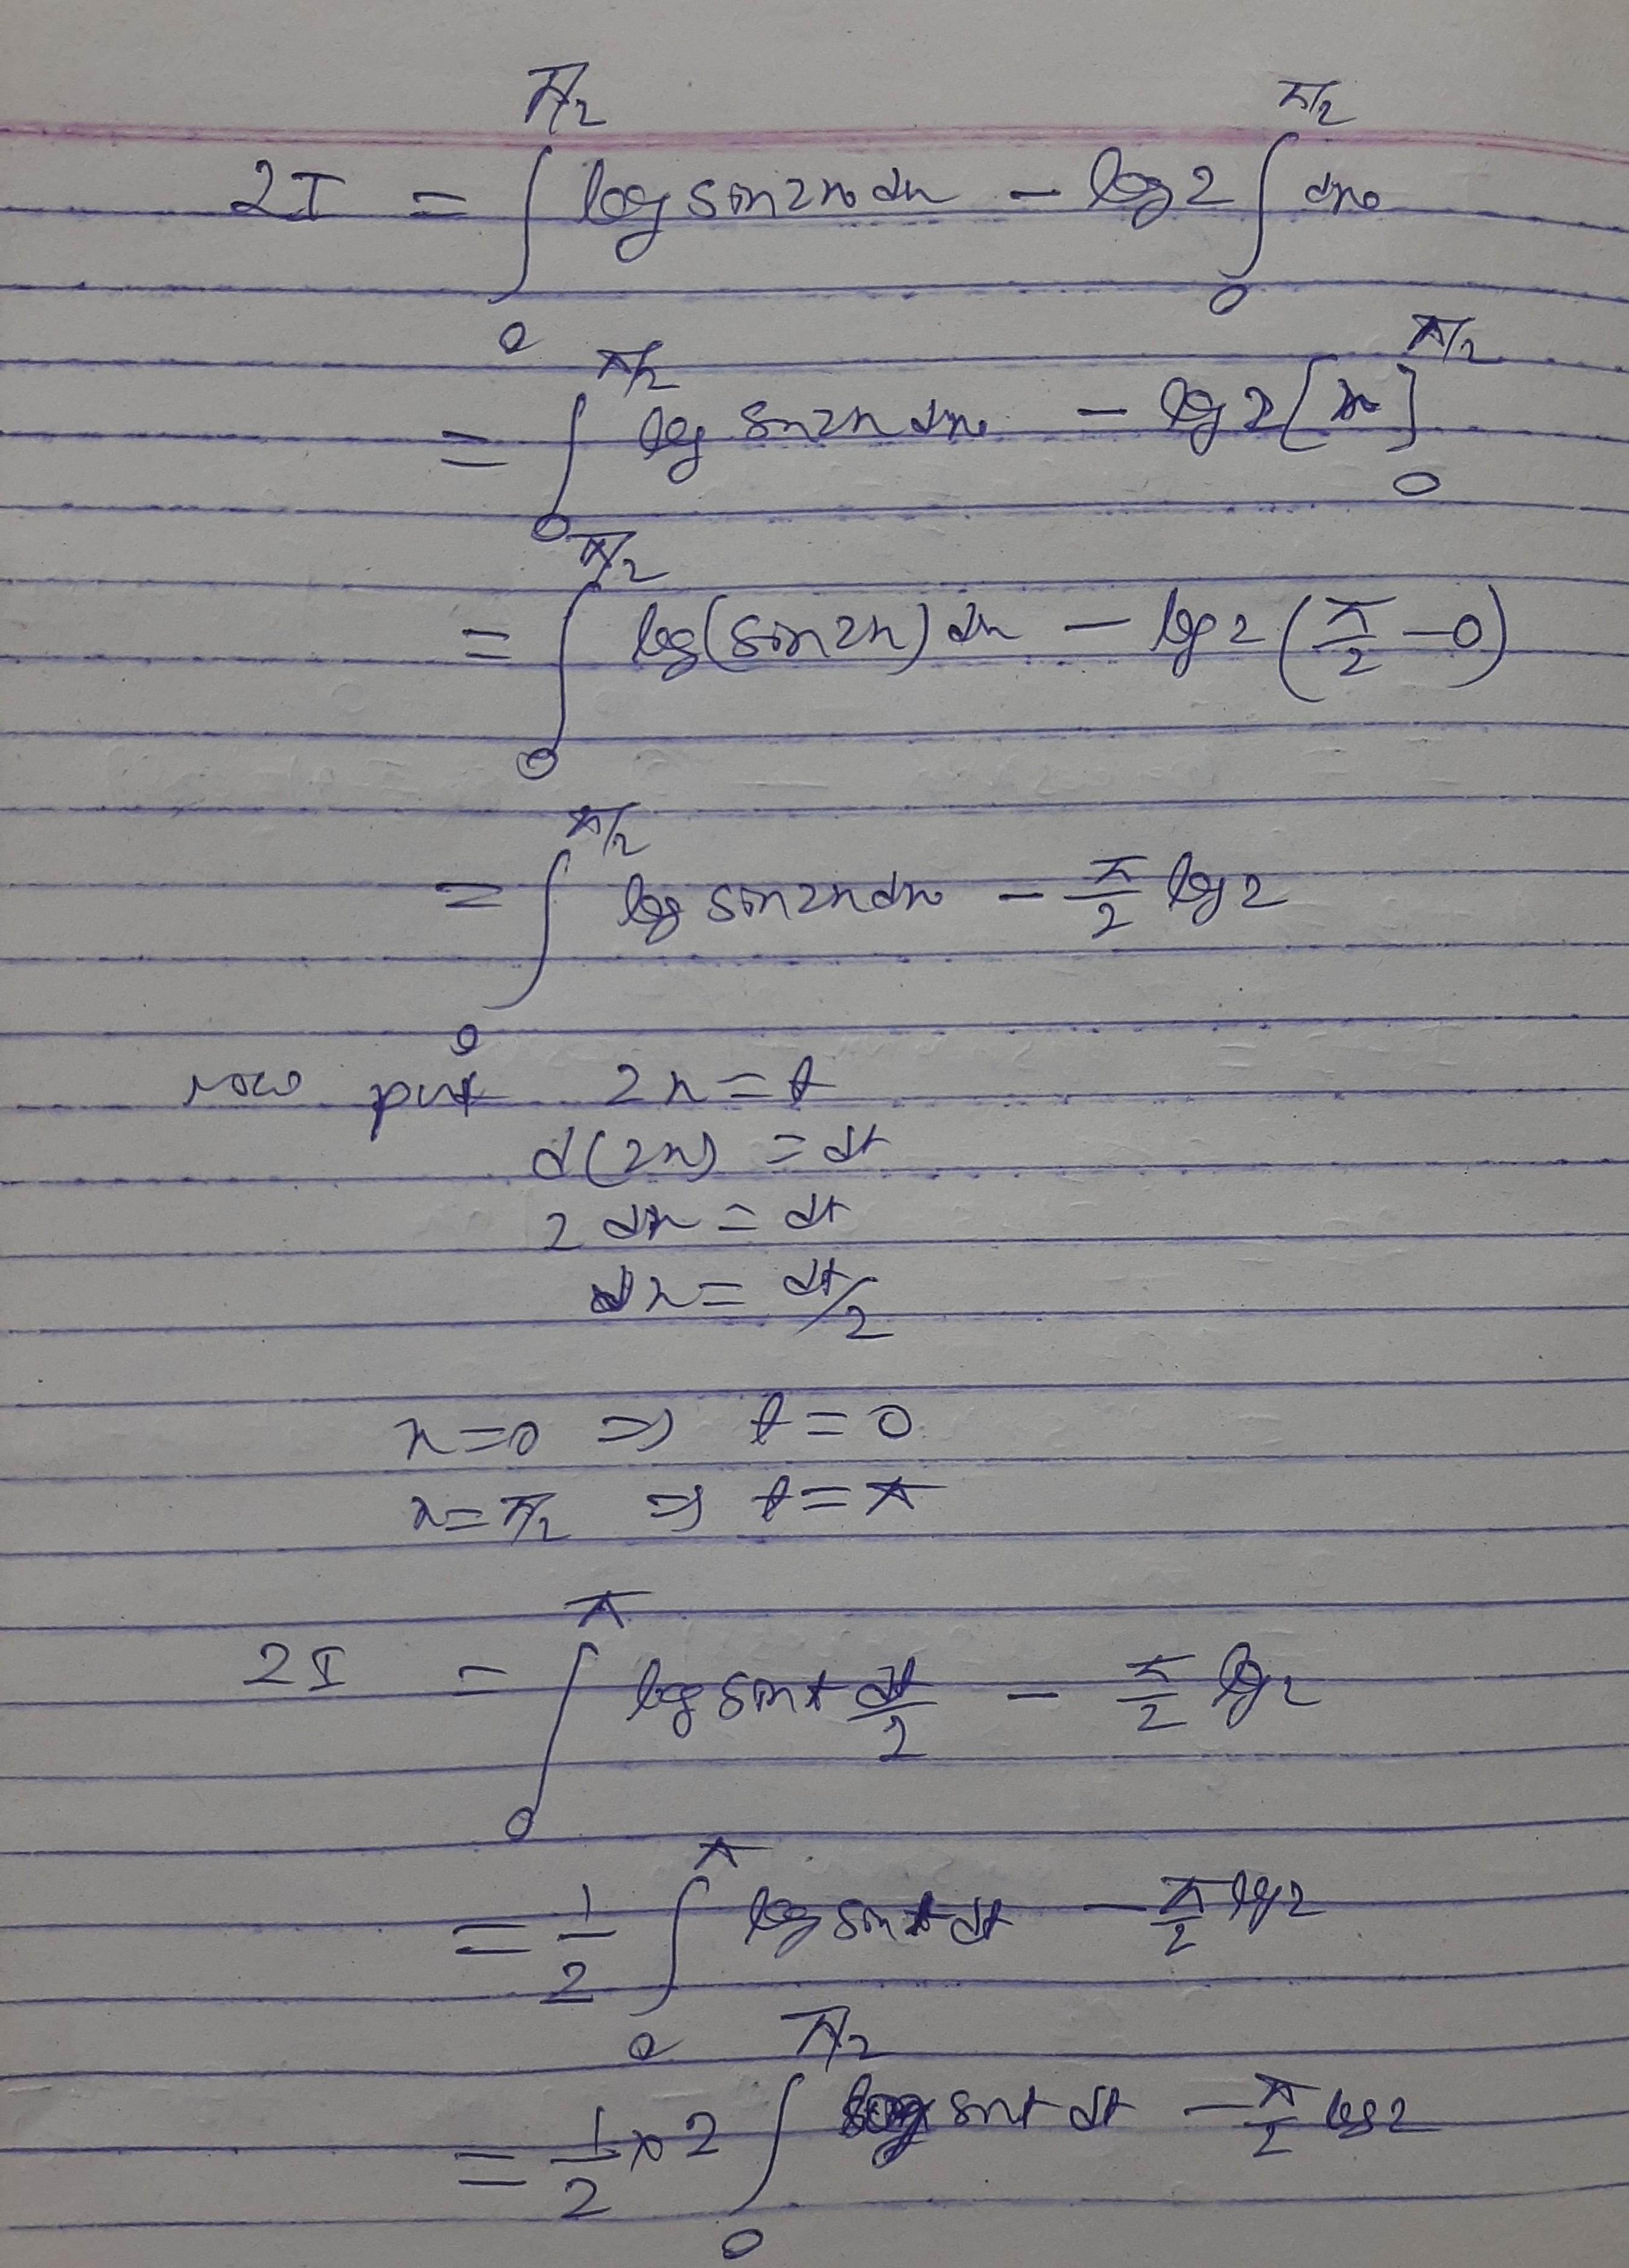 2I = ∫₀^{π/2} log sin2x dx - log2 ∫₀^{π/2} dx
= ∫₀^{π/2} log sin2x dx - log2 [x]₀^{π/2}
= ∫₀^{π/2} log(sin2x) dx - log2 (π/2 - 0)
= ∫₀^{π/2} log sin2x dx - π/2 log2
now put 2x = t
d(2x) = dt
2 dx = dt
dx = dt/2
x=0 ⇒ t=0
x=π/2 ⇒ t=π
2I = ∫₀^{π} log sint dt/2 - π/2 log2
= 1/2 ∫₀^{π} log sint dt - π/2 log2
= 1/2 × 2 ∫₀^{π/2} log sint dt - π/2 log2